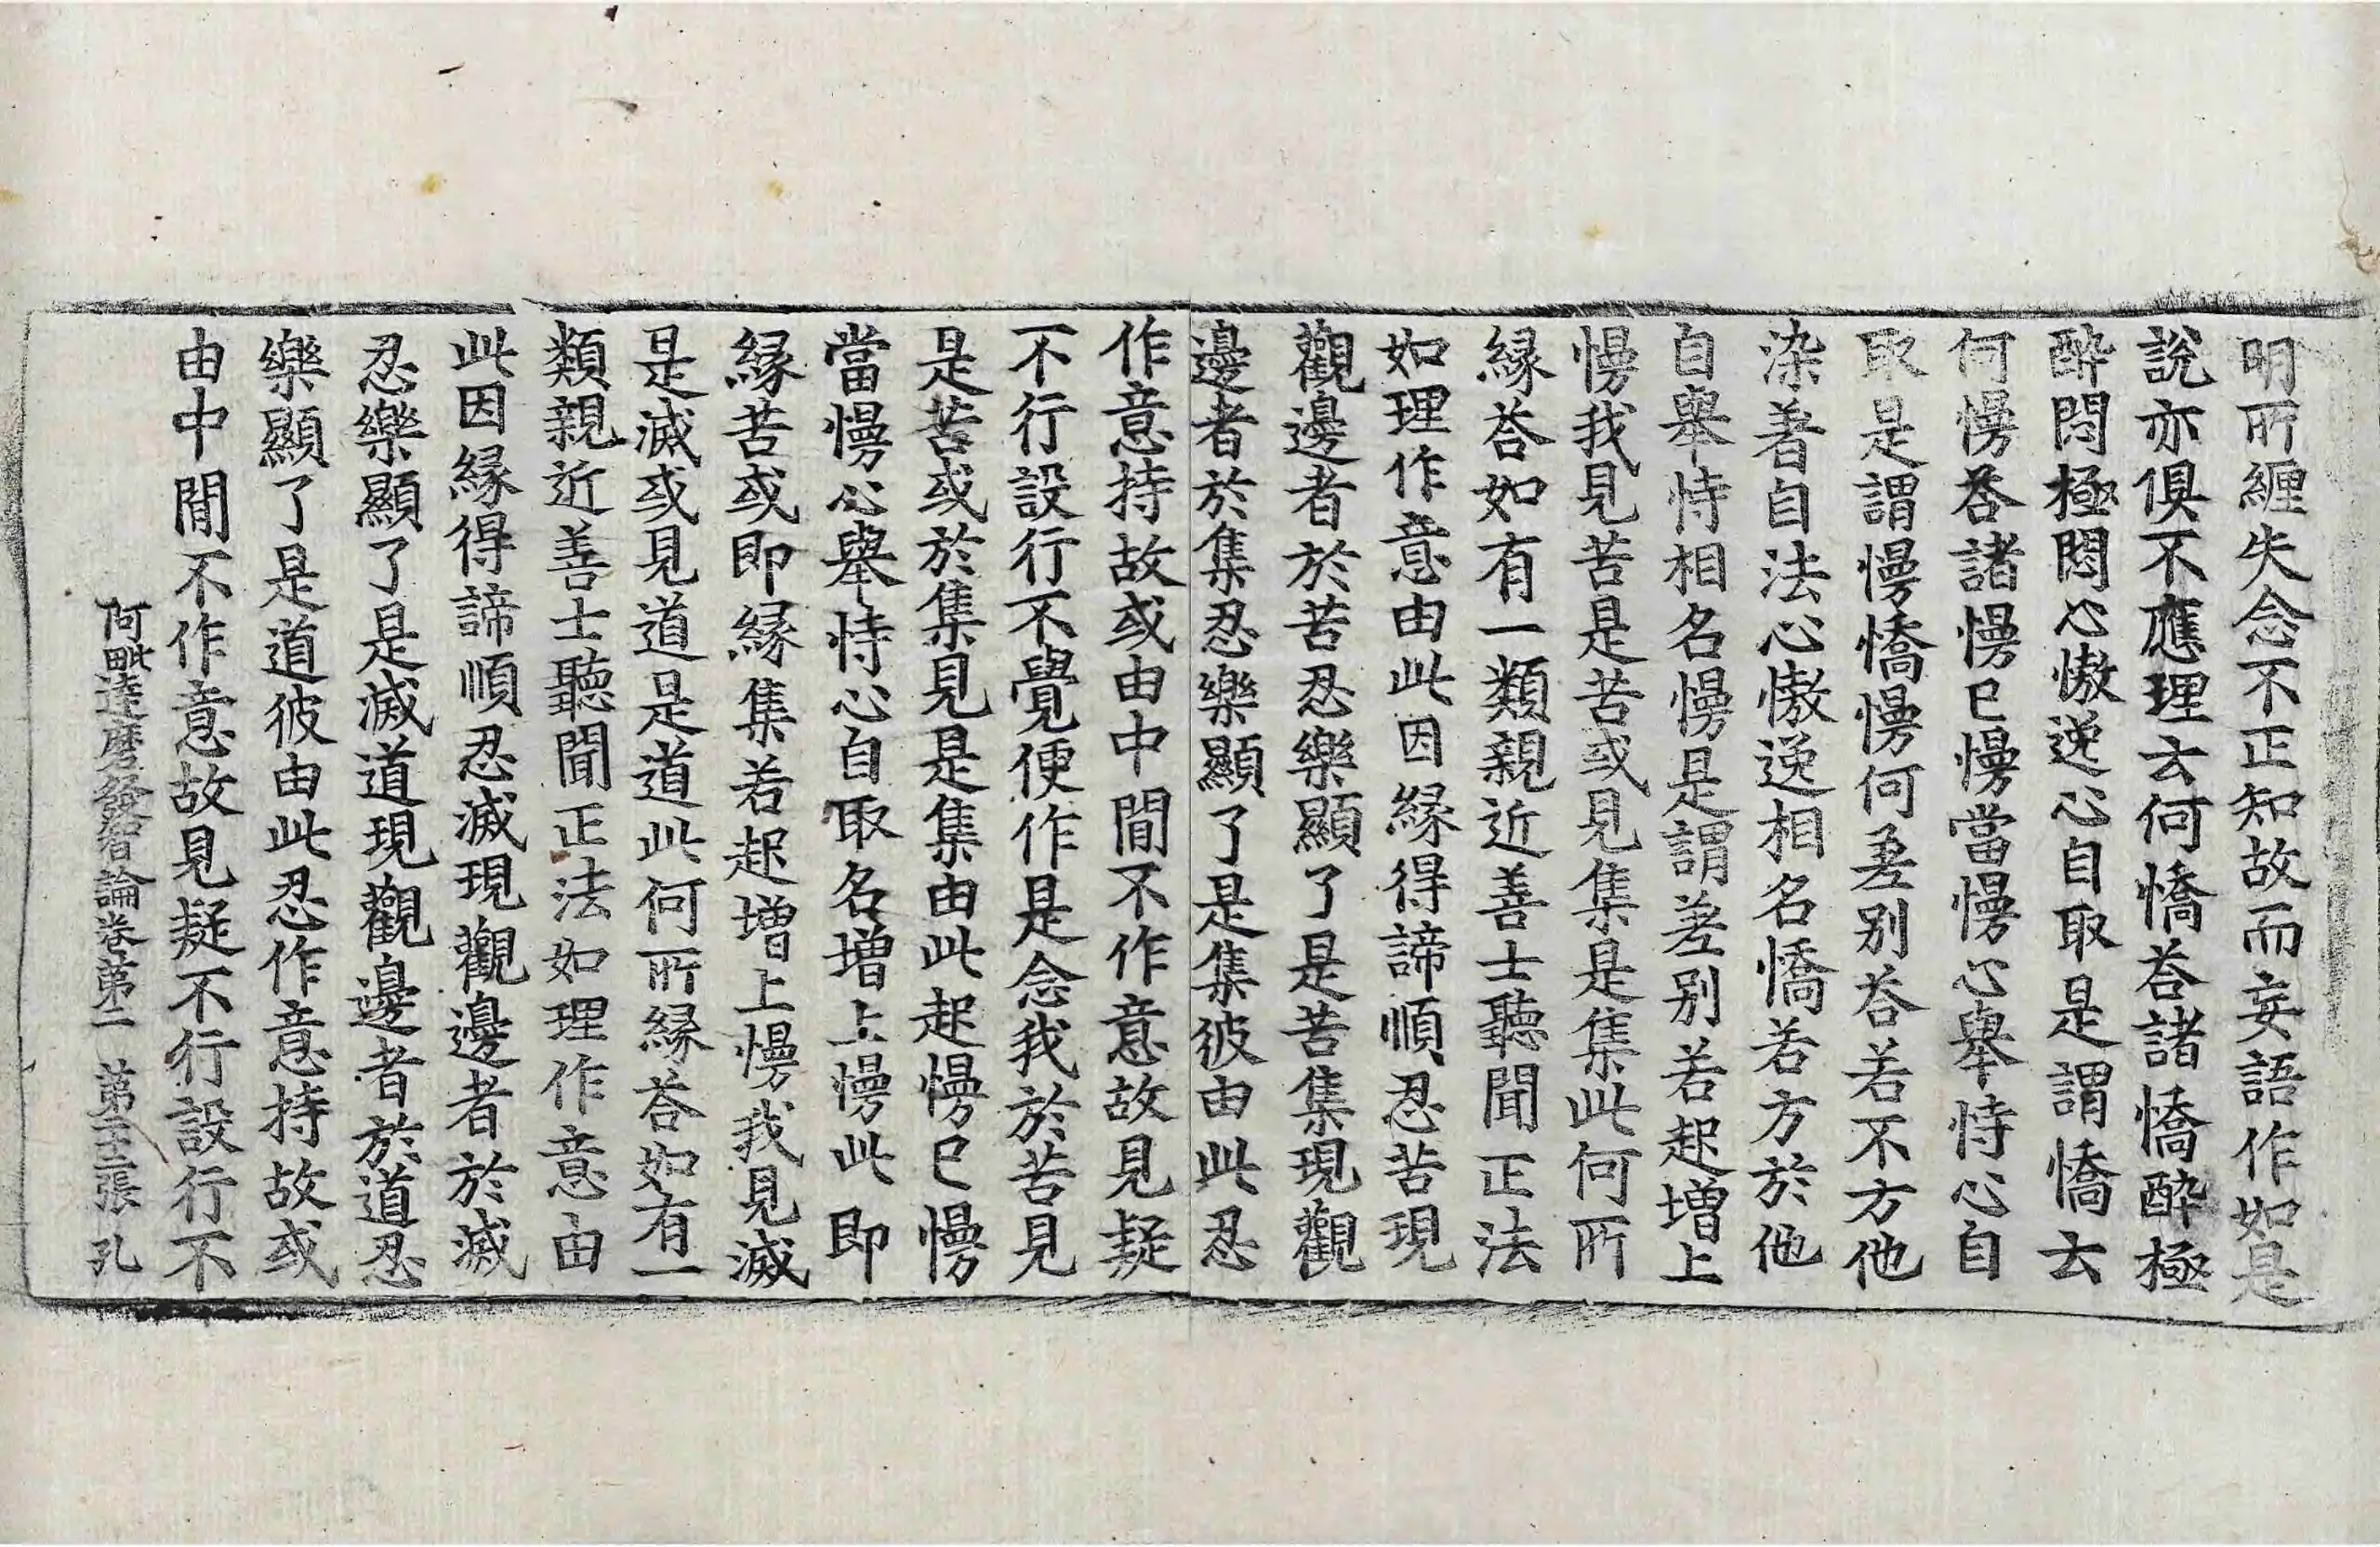 明所纏失念不正知故而妄語作如是
說亦俱不應理去何憍荅諸憍醉極
醉悶極悶心慠逸心自取是謂憍去
何慢荅諸慢已慢當慢心舉恃心自
取是謂慢憍慢何差别荅若不方他
染著自法心慠逸相名憍若方於他
自舉恃相名慢是謂差别若起增上
慢我見苦是苦或見集是集此何所
緣荅如有一類親近善士聽聞正法
如理作意由此因緣得諦順忍苦現
觀邊者於苦忍樂顯了是苦集現觀
邊者於集忍樂顯了是集彼由此忍
作意持故或由中間不作意故見疑
不行設行不覺便作是念我於苦見
是苦或於集見是集由此起慢已慢
當慢心舉恃心自取名增上慢此即
緣苦或即緣集若起增上慢我見滅
是滅或見道是道此何所緣荅如有一
類親近善士聽聞正法如理作意由
此因緣得諦順忍滅現觀邊者於滅
忍樂顯了是滅道現觀邊者於道忍
樂顯了是道彼由此忍作意持故或
由中間不作意故見疑不行設行不
阿毗達磨發智論卷第二 第二張 孔